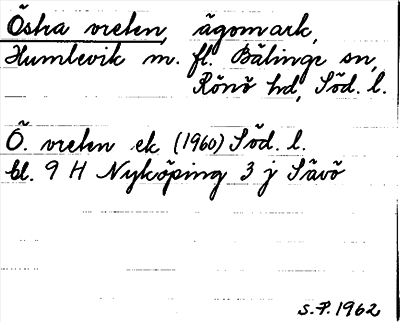 Östra vreten, ägomark,
Humlevik m. fl. Bälinge sn,
Rönö hd, Söd. l.
Ö. vreten ek (1960) Söd. l.
bl. 9 H Nyköping 3 j Sävö
S.P. 1962